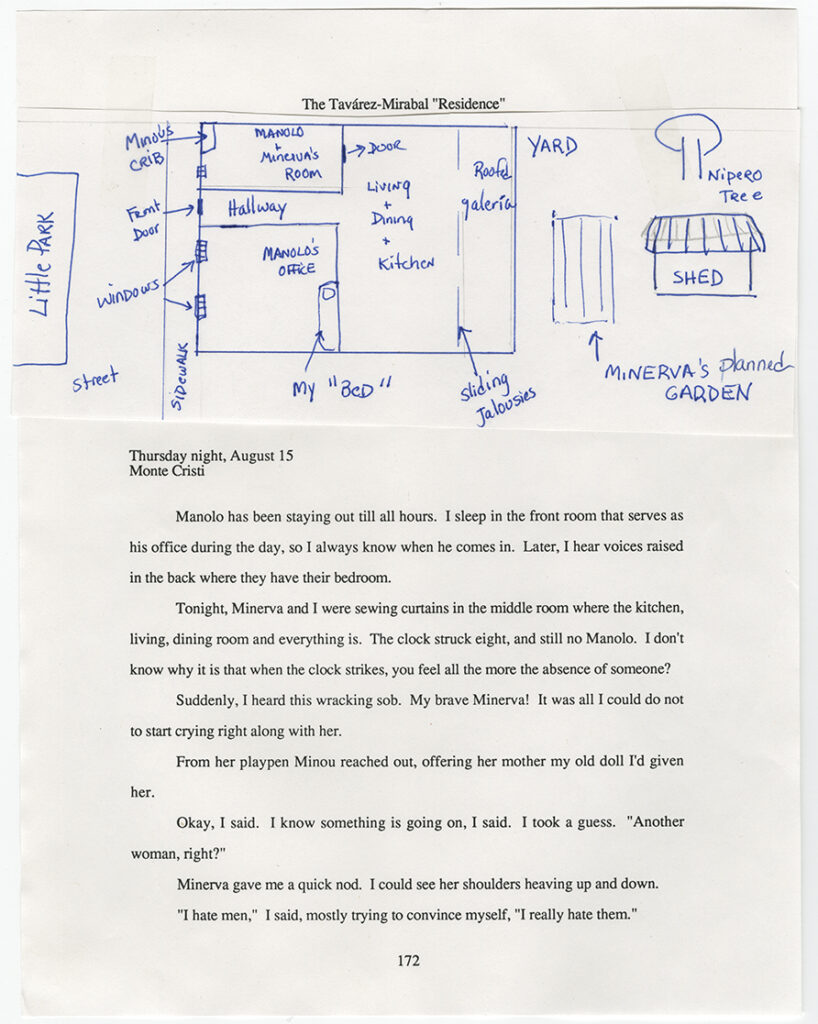 The Tavárez-Mirabal "Residence"
Minou's
CRIB
MANOLO
+
MINERVA'S
ROOM
DOOR
YARD
NIPERO
TREE
Front
Door
Hallway
Living
+
Dining
+
Kitchen
Roofed
galería
Little PARK
MANOLO'S
OFFICE
WINDOWS
SHED
Street
SIDEWALK
MY "BED"
Sliding
Jalousies
MINERVA'S planned
GARDEN
Thursday night, August 15
Monte Cristi
Manolo has been staying out till all hours. I sleep in the front room that serves as
his office during the day, so I always know when he comes in. Later, I hear voices raised
in the back where they have their bedroom.
Tonight, Minerva and I were sewing curtains in the middle room where the kitchen,
living, dining room and everything is. The clock struck eight, and still no Manolo. I don't
know why it is that when the clock strikes, you feel all the more the absence of someone?
Suddenly, I heard this wracking sob. My brave Minerva! It was all I could do not
to start crying right along with her.
From her playpen Minou reached out, offering her mother my old doll I'd given
her.
Okay, I said. I know something is going on, I said. I took a guess. "Another
woman, right?"
Minerva gave me a quick nod. I could see her shoulders heaving up and down.
"I hate men," I said, mostly trying to convince myself, "I really hate them."
172